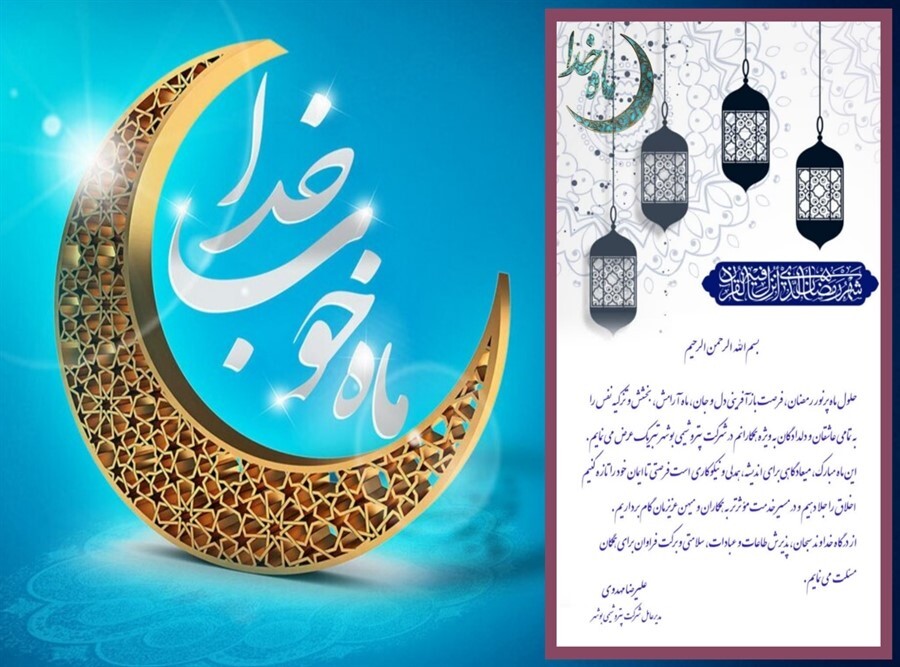 ماه خوب خدا
ماه خدا
شهر رمضان الذی انزل فیه القرآن
بسم الله الرحمن الرحیم
حلول ماه پرنور رمضان، فرصت بازآفرینی دل و جان، ماه آرامش، بخشش و تزکیه نفس را
به تمامی عاشقان و دلدادگان به ویژه همکارانم در شرکت پتروشیمی بوشهر تبریک عرض می نمایم.
این ماه مبارک، میعادگاهی برای اندیشه، همدلی و نیکوکاری است فرصتی تا ایمان خود را تازه کنیم
اخلاق را جلا دهیم و در مسیر خدمت مؤثرتر به همکاران و میهن عزیزمان گام برداریم.
از درگاه خداوند سبحان، پذیرش طاعات و عبادات، سلامتی و برکت فراوان برای همگان
مسئلت می نمایم.
علیرضا مهدوی
مدیرعامل شرکت پتروشیمی بوشهر